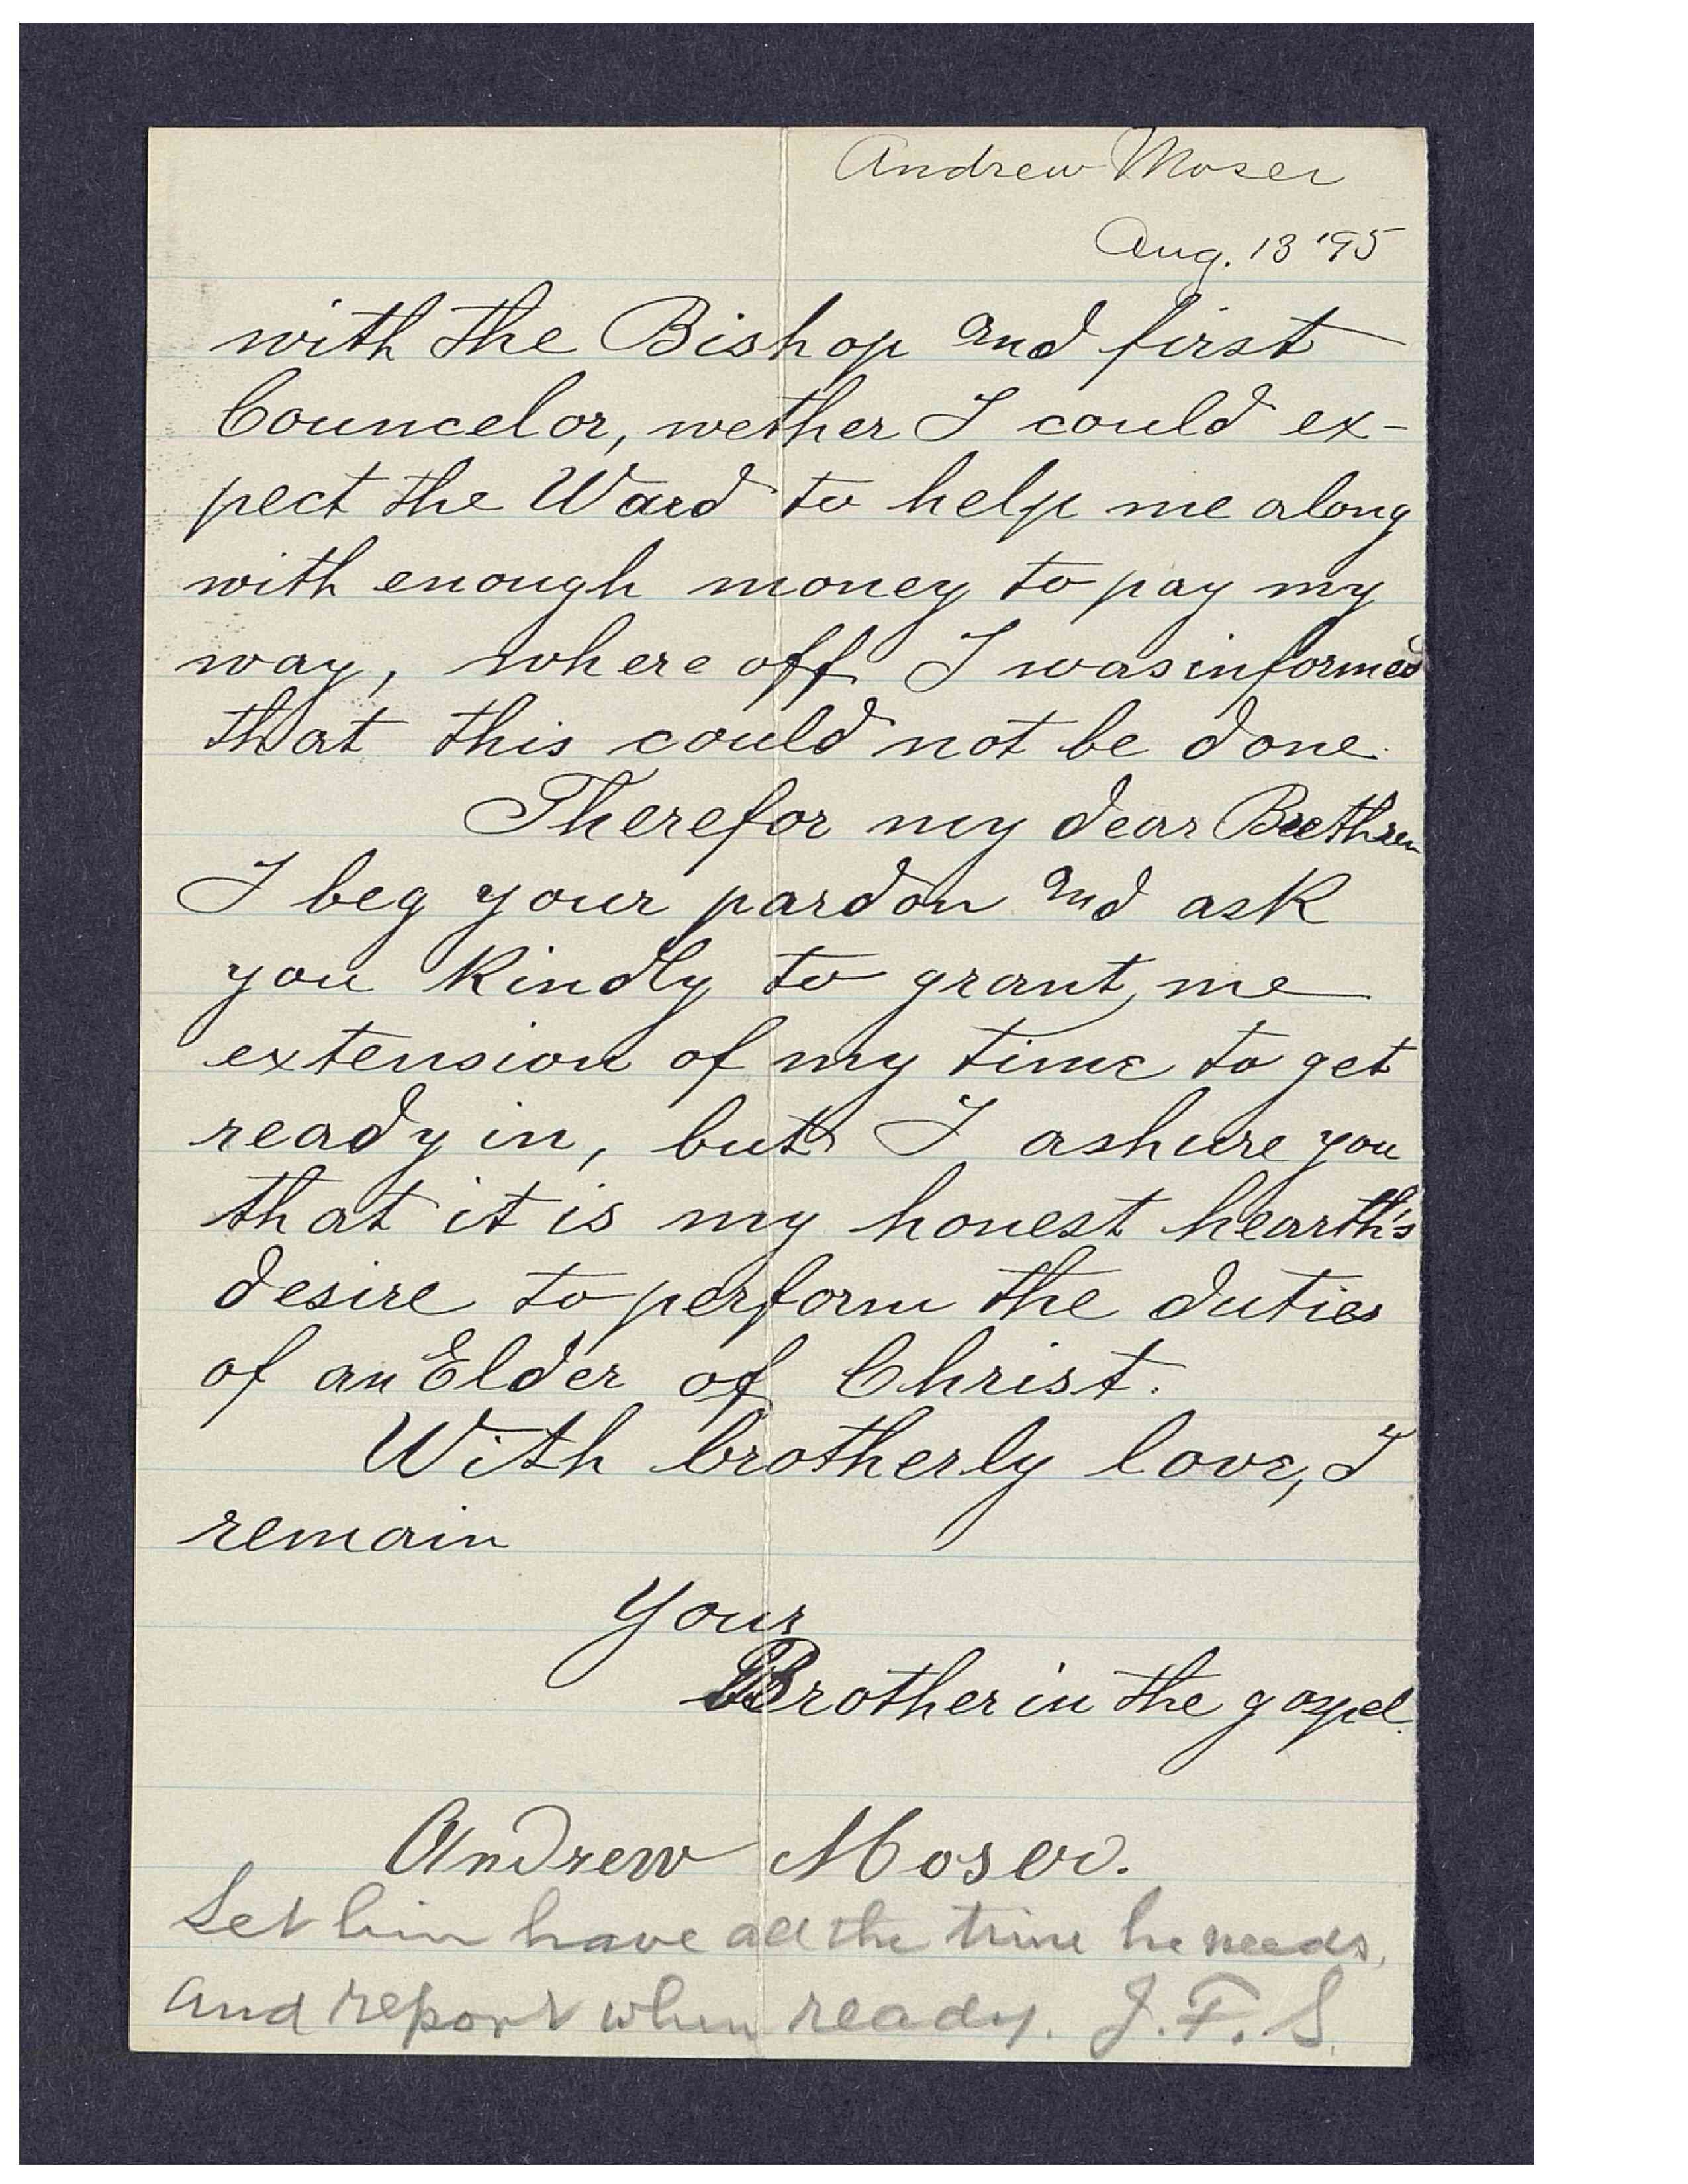 Andrew Moser
Aug. 13 '95
with the Bishop and first
Councelor, wether I could ex-
pect the Ward to help me along
with enough money to pay my
way, where off I was informed
that this could not be done.
Therefor my dear Brethren
I beg your pardon and ask
you kindly to grant me
extension of my time to get
ready in, but I ashure you
that it is my honest hearth's
desire to perform the duties
of an Elder of Christ.
With brotherly love, I
remain
Your
Brother in the gospel.
Andrew Moser.
Let him have all the time he needs,
and report when ready. J. F. S.